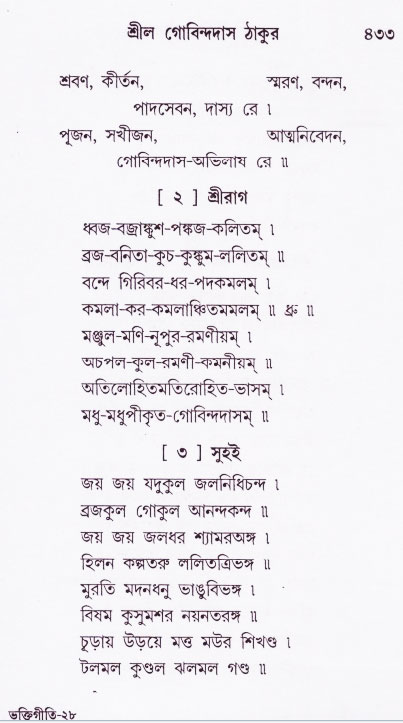 শ্রীল গোবিন্দদাস ঠাকুর ৪৩৩
শ্রবণ, কীর্তন, স্মরণ, বন্দন,
পাদসেবন, দাস্য রে ।
পূজন, সখীজন, আত্মনিবেদন,
গোবিন্দদাস-অভিলাষ রে ॥
[ ২ ] শ্রীরাগ
ধ্বজ-বজ্রাঙ্কুশ-পঙ্কজ-কলিতম্ ।
ব্রজ-বনিতা-কুচ-কুঙ্কুম-ললিতম্ ॥
বন্দে গিরিবর-ধর-পদকমলম্ ।
কমলা-কর-কমলাঞ্চিতমমলম্ ॥ ধ্রু ॥
মঞ্জুল-মণি-নূপুর-রমণীয়ম্ ।
অচপল-কুল-রমণী-কমনীয়ম্ ॥
অতিলোহিতমতিরোহিত-ভাসম্ ।
মধু-মধুপীকৃত-গোবিন্দদাসম্ ॥
[ ৩ ] সুহই
জয় জয় যদুকুল জলনিধিচন্দ ।
ব্রজকুল গোকুল আনন্দকন্দ ॥
জয় জয় জলধর শ্যামরঅঙ্গ ।
হিলন কল্পতরু ললিতত্রিভঙ্গ ॥
মুরতি মদনধনু ভাঙুবিভঙ্গ ।
বিষম কুসুমশর নয়নতরঙ্গ ॥
চূড়ায় উড়য়ে মত্ত মউর শিখণ্ড ।
টলমল কুণ্ডল ঝলমল গণ্ড ॥
ভক্তিগীতি-২৮